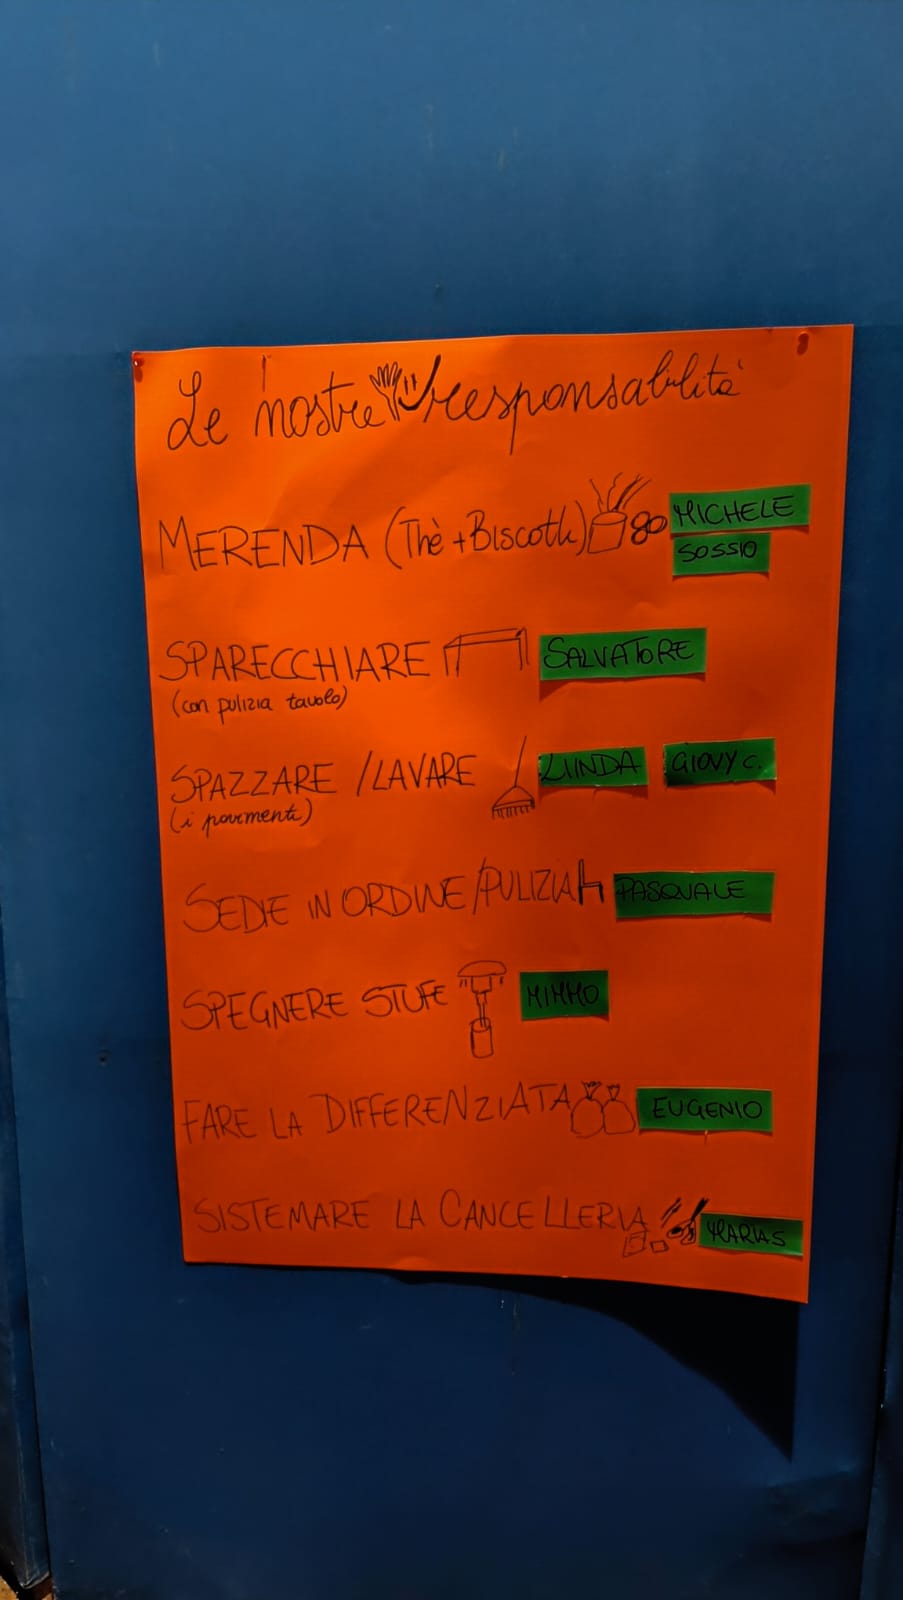 Le nostre responsabilità
MERENDA (Thè + Biscotti) MICHELE
SOSSIO
SPARECCHIARE SALVATORE
(con pulizia tavolo)
SPAZZARE / LAVARE LINDA GIOVY C.
(i pavimenti)
SEDIE IN ORDINE / PULIZIA PASQUALE
SPEGNERE STUFE MIMMO
FARE LA DIFFERENZIATA EUGENIO
SISTEMARE LA CANCELLERIA